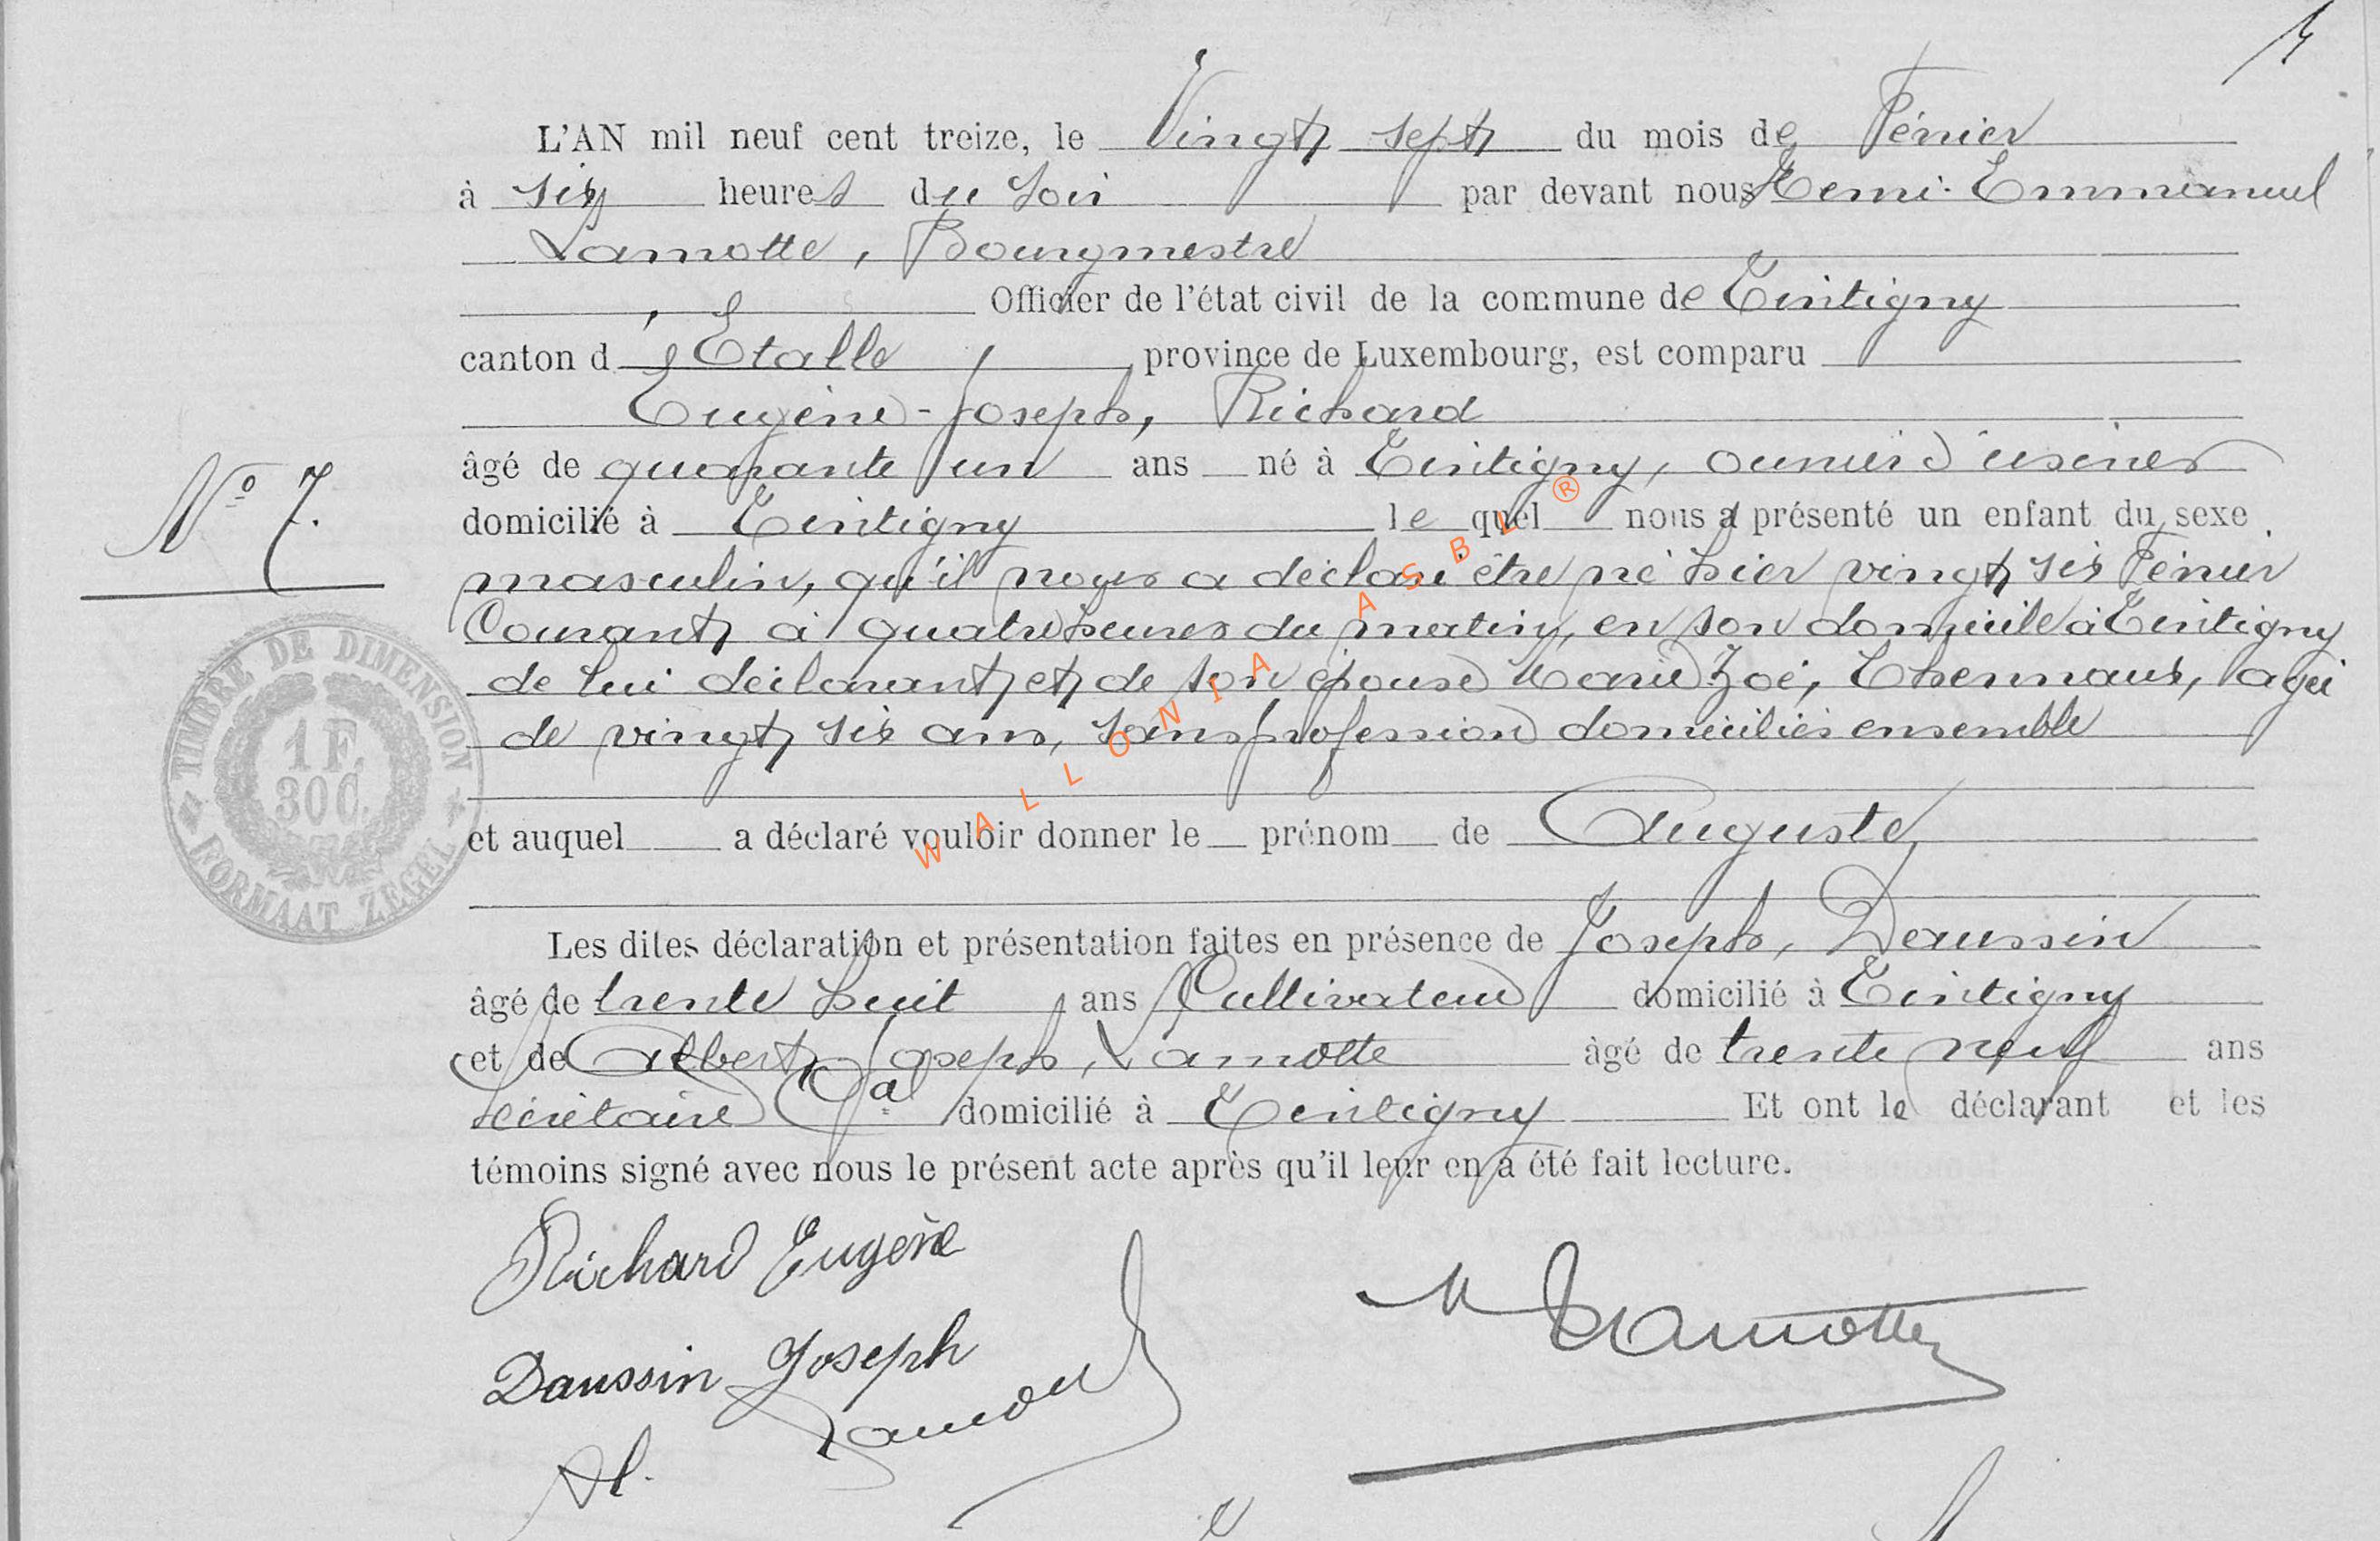 L'AN mil neuf cent treize, le Vingt sept du mois de Février
à six heures du soir par devant nous Remi-Emmanuel
Lamotte, Bourgmestre
, Officier de l'état civil de la commune de Tintigny
canton d'Etalle, province de Luxembourg, est comparu
Eugène-Joseph, Richard
âgé de quarante un ans né à Tintigny, ouvrier d'usines
N° 7.
domicilié à Tintigny lequel nous a présenté un enfant du sexe
masculin, qu'il nous a déclaré être né hier vingt six Février
Courant à quatre heures du matin, en son domicile à Tintigny
de lui déclarant et de son épouse Marie Zoé, Thermaux, agée
de vingt six ans, sans profession domiciliés ensemble
TIMBRE DE DIMENSION
1 F.
30 C.
FORMAAT ZEGEL
et auquel a déclaré vouloir donner le prénom de Auguste,
Les dites déclaration et présentation faites en présence de Joseph, Daussin
âgé de trente huit ans Cultivateur domicilié à Tintigny
et de Albert, Joseph, Lamotte âgé de trente neuf ans
Secrétaire Cal domicilié à Tintigny Et ont le déclarant et les
témoins signé avec nous le présent acte après qu'il leur en a été fait lecture.
Richard Eugène
Daussin Joseph
Lamotte
Al. Lamotte
WALLONIA ASBL ®